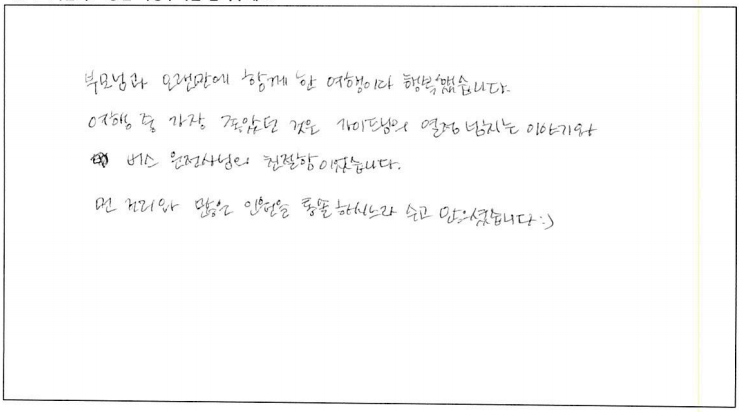 부모님과 오랜만에 함께 한 여행이라 행복했습니다.
여행 중 가장 좋았던 것은 가이드님의 열정 넘치는 이야기와
버스 운전사님의 친절함이었습니다.
먼 거리와 많은 인원을 통솔하시느라 수고 많으셨습니다:)